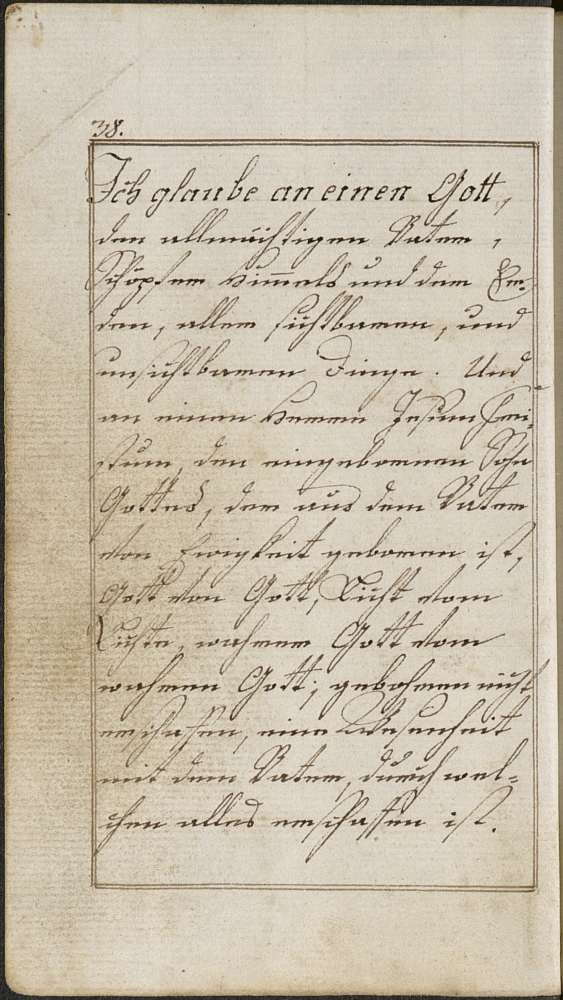 38.
Ich glaube an einen Gott,
den allmächtigen Vater,
Schöpfer Him̅els und der Er-
den, aller sichtbaren, und
unsichtbaren Dinge. Und
an einen Herren Jesum Chri-
stum, den eingebornen Sohn
Gottes, der aus dem Vater
von Ewigkeit geboren ist,
Gott von Gott, Licht vom
Lichte, wahrer Gott vom
wahren Gott; gebohren nicht
erschaffen, einer Wesenheit
mit dem Vater, durch wel-
chen alles erschaffen ist.